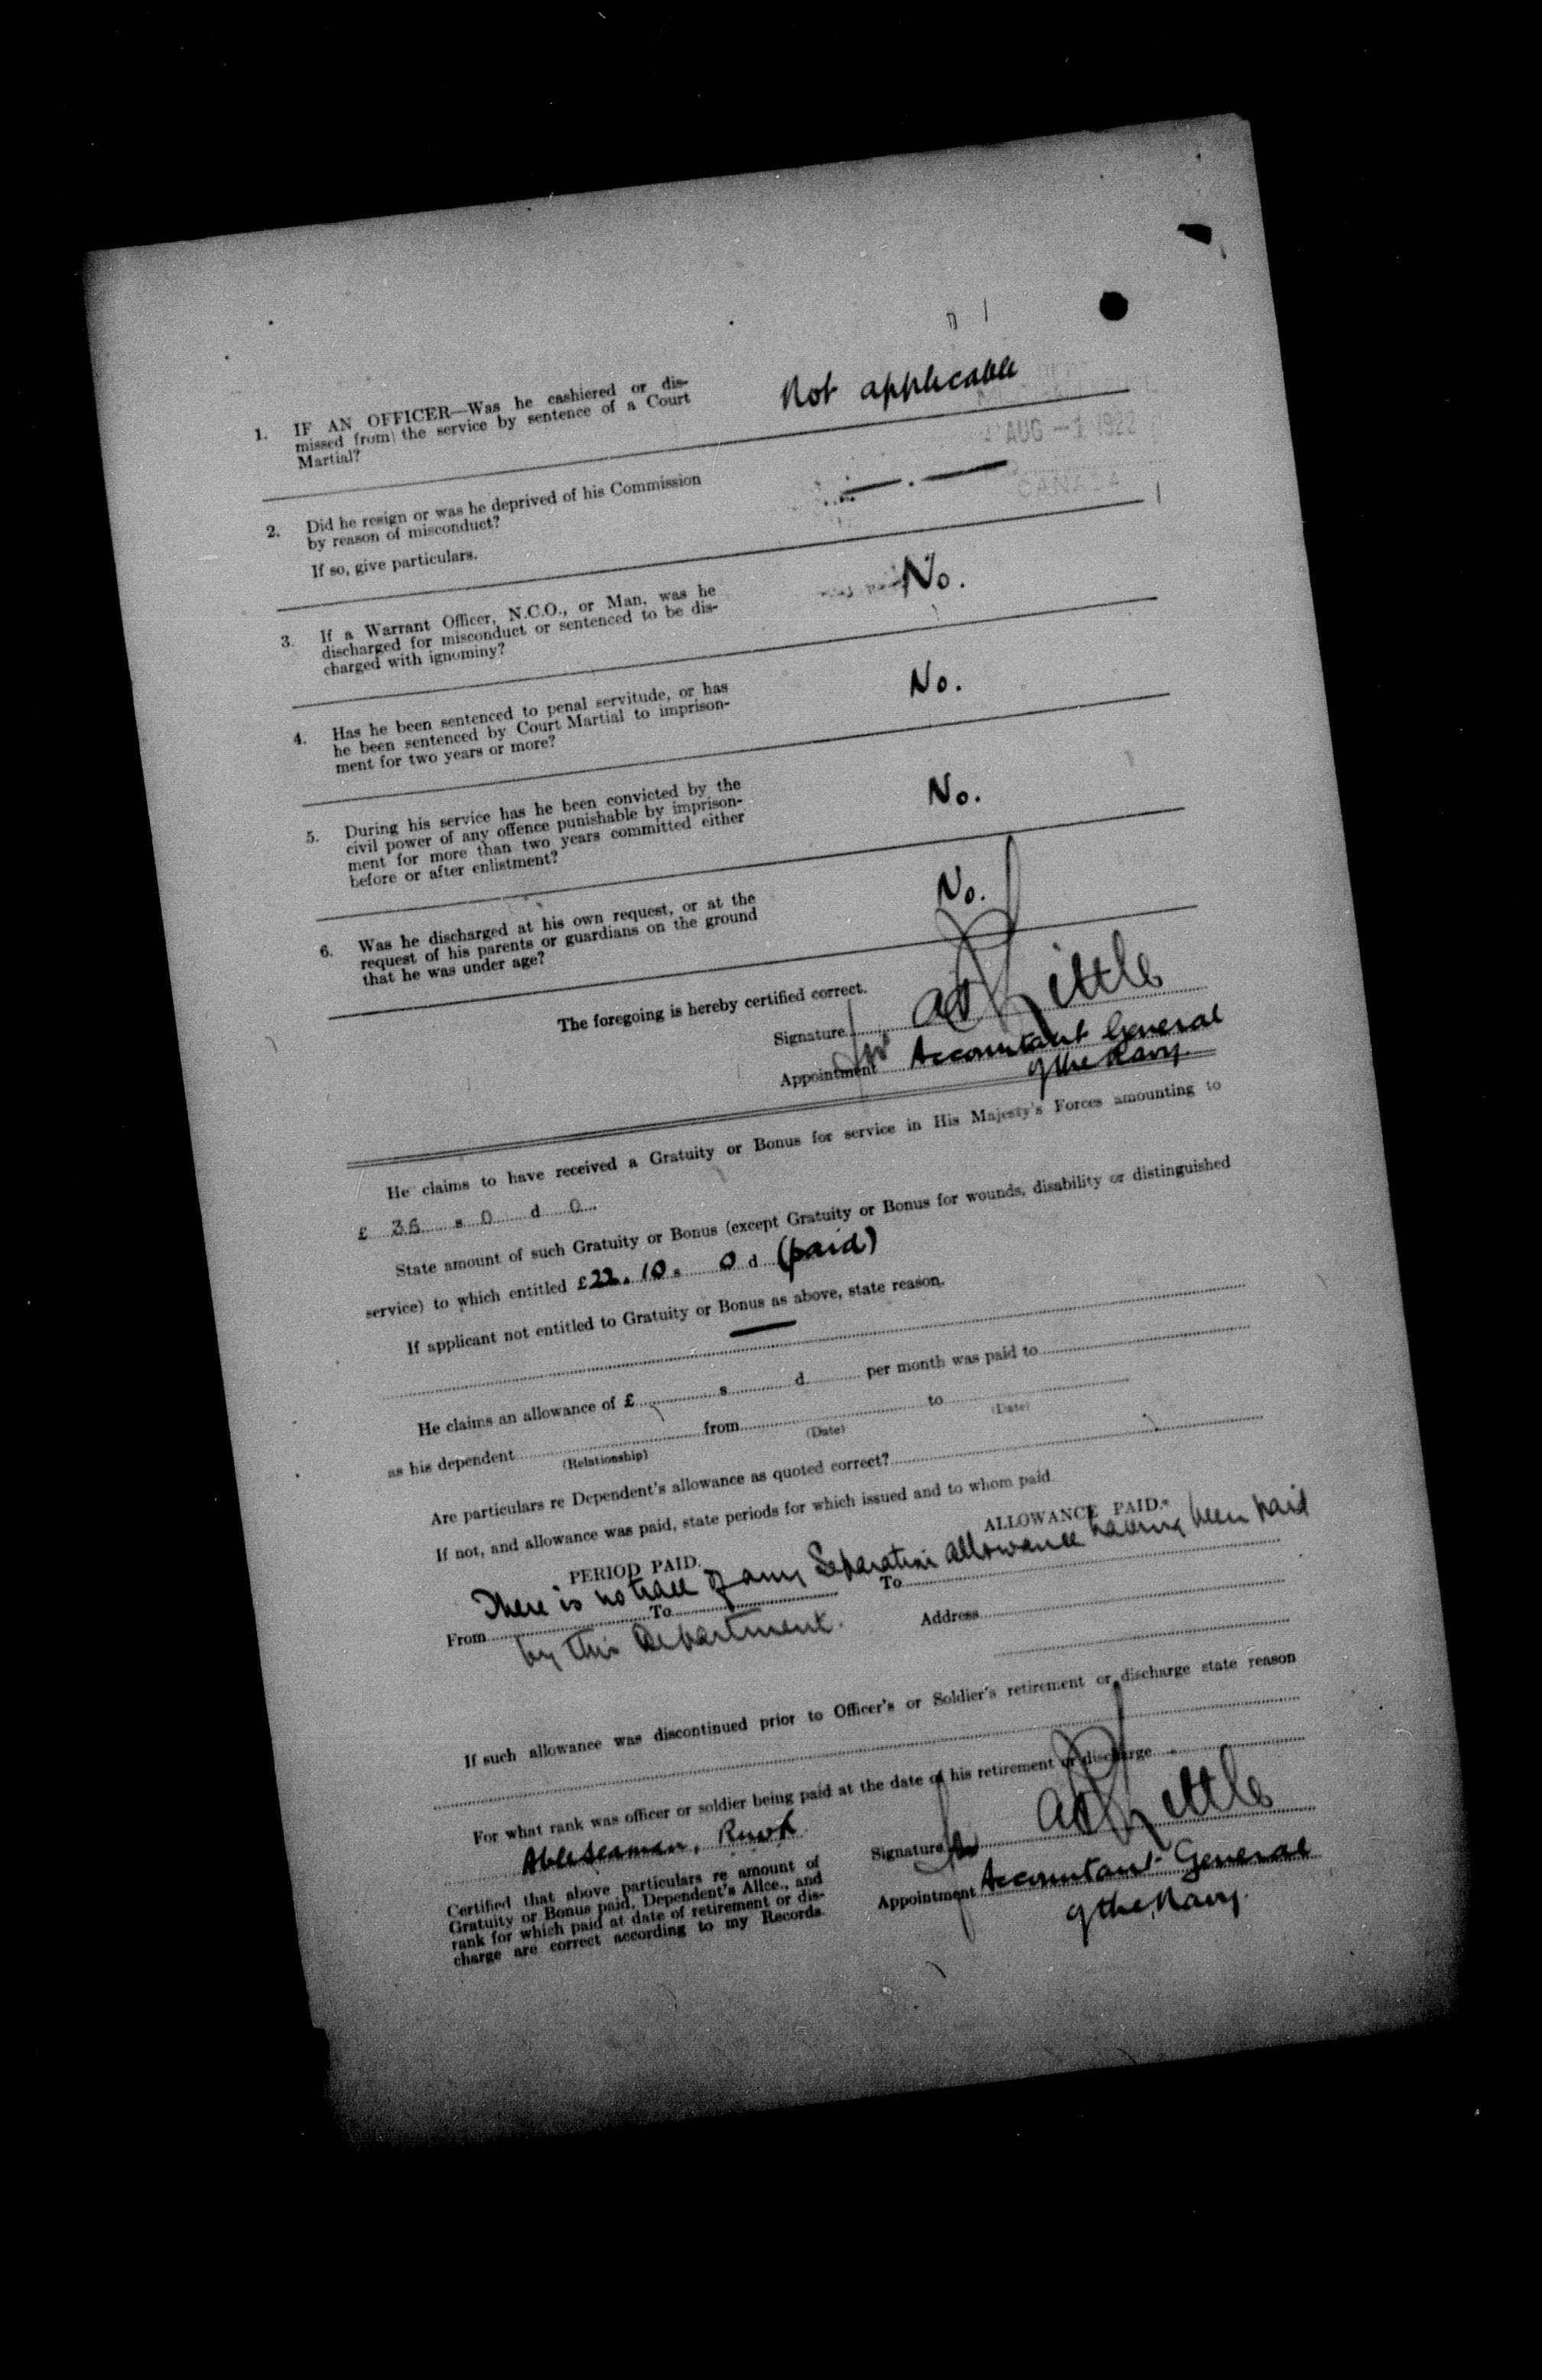 1. IF AN OFFICER—Was he cashiered or dis-
missed from) the service by sentence of a Court
Martial?
Not applicable
AUG -1 1922
CANADA
2. Did he resign or was he deprived of his Commission
by reason of misconduct?
If so, give particulars.
3. If a Warrant Officer, N.C.O., or Man, was he
discharged for misconduct or sentenced to be dis-
charged with ignominy?
No.
4. Has he been sentenced to penal servitude, or has
he been sentenced by Court Martial to imprison-
ment for two years or more?
No.
5. During his service has he been convicted by the
civil power of any offence punishable by imprison-
ment for more than two years committed either
before or after enlistment?
No.
6. Was he discharged at his own request, or at the
request of his parents or guardians on the ground
that he was under age?
No.
The foregoing is hereby certified correct.
Signature Little
Appointment for Accountant General
of the Navy.
He claims to have received a Gratuity or Bonus for service in His Majesty's Forces amounting to
£ 36 s 0 d 0
State amount of such Gratuity or Bonus (except Gratuity or Bonus for wounds, disability or distinguished
service) to which entitled £22. 10 s 0 d (paid)
If applicant not entitled to Gratuity or Bonus as above, state reason.
He claims an allowance of £ s d per month was paid to
as his dependent from to
(Relationship) (Date) (Date)
Are particulars re Dependent's allowance as quoted correct?
If not, and allowance was paid, state periods for which issued and to whom paid
PERIOD PAID. ALLOWANCE PAID.
There is no trace of any Separation allowance having been paid
From To To
by this Department.
Address
If such allowance was discontinued prior to Officer's or Soldier's retirement or discharge state reason
For what rank was officer or soldier being paid at the date of his retirement or discharge
Able Seaman,
Signature for Little
Appointment Accountant General
of the Navy.
Certified that above particulars re amount of
Gratuity or Bonus paid, Dependent's Allce., and
rank for which paid at date of retirement or dis-
charge are correct according to my Records.